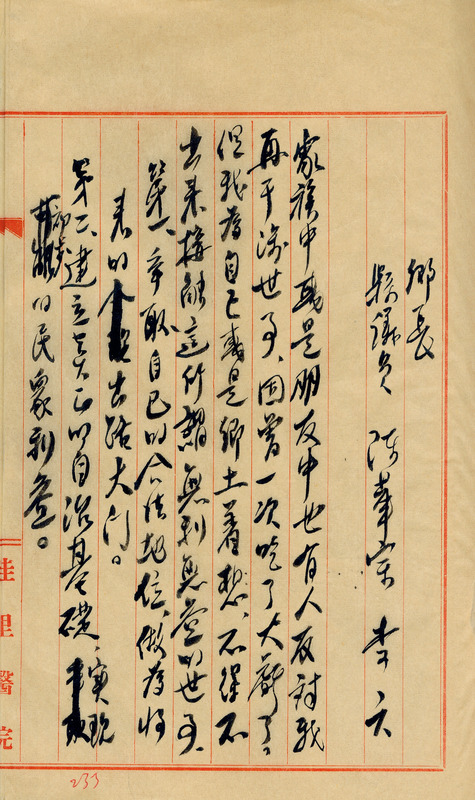 鄉長
縣議員 陳華宗 李
家族中或是朋友中也有人反對我
再干涉世事、因曾一次吃了大虧了。
但我為自己或是鄉土著想、不得不
出來接觸這所謂無利無益的世事、
第一、爭取自己的合法地位、做為將
來的出路大門。
第二、建立真正的自治基礎、實現
部落的民眾利益。
佳里醫院
233